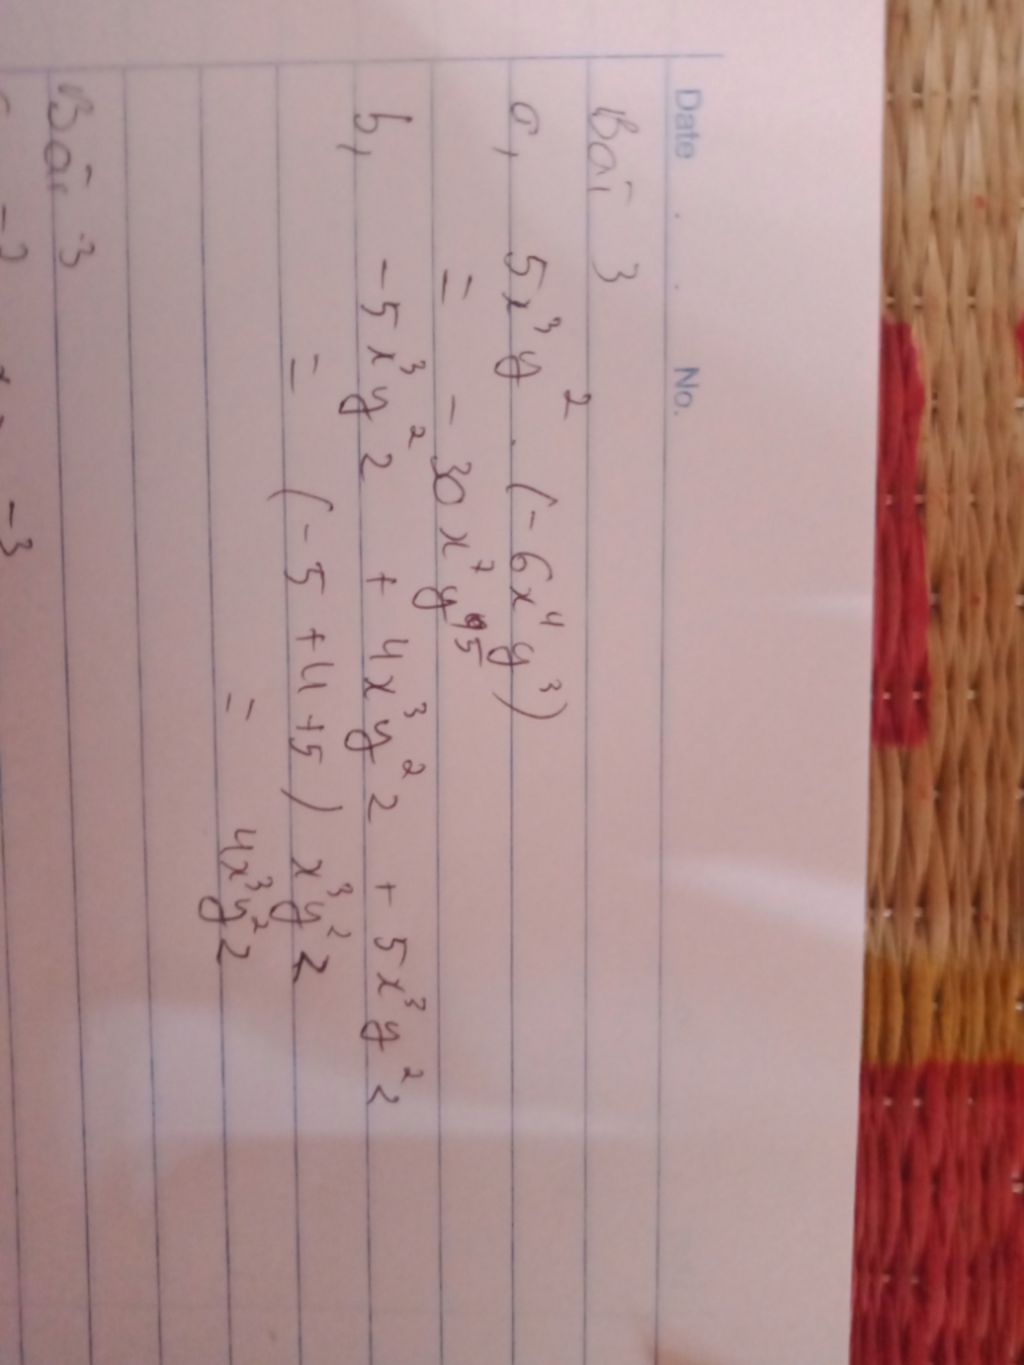 Date . . No.
Bài 3
a, 5x³y² . (-6x⁴y³)
= -30x⁷y⁵
b, -5x³y²z + 4x³y²z + 5x³y²z
= (-5+4+5) x³y²z
= 4x³y²z
Bài 3